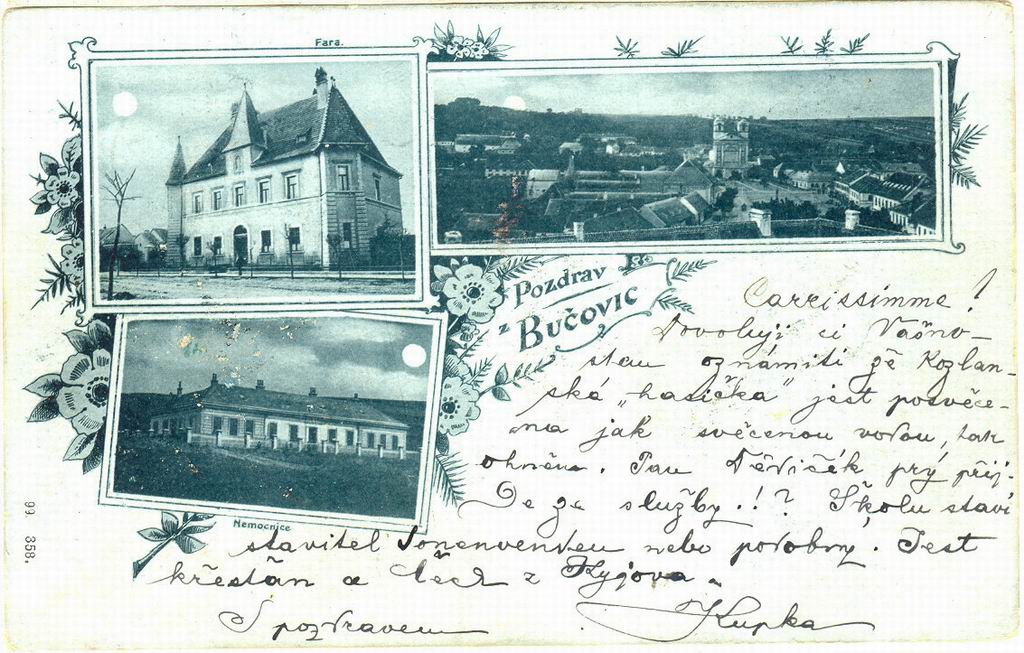 Fara.
Pozdrav
z Bučovic
Nemocnice
99 358.
Carrissimme!
Dovoluji si Vašno-
stem oznámiti že Kozlan-
ská „hasička" jest posvěce-
na jak svěcenou vodou, tak
ohněm. Pan Děvičák prý přij-
de ze služby.!? Školu staví
stavitel nebo podobný. Jest
křestán a Čech z Kyjova.
S pozdravem Kupka